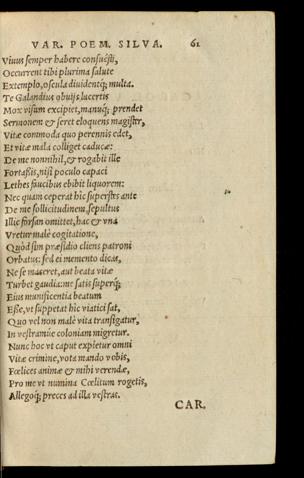 VAR. POEM. SILVA. 61
Viuus semper habere consueuisti,
Occurrent tibi plurima salute
Extemplo, oscula diuidentq; multa.
Te Galandius obuijs lacertis
Mox visum excipiet, manuq; prendet
Sermonem & seret eloquens magister,
Vitæ commoda quo perennis edet,
Et vitæ mala colliget caducæ:
De me nonnihil, & rogabit ille
Fortassis, nisi poculo capaci
Lethes faucibus ebibit liquorem:
Nec quam ceperat hic superstes ante
De me sollicitudinem, sepultus
Illic forsan omittet, hac & vna
Vretur malè cogitatione,
Quòd sim præsidio cliens patroni
Orbatus: sed ei memento dicas,
Ne se maceret, aut beata vitæ
Turbet gaudia: me satis superq;
Eius munificentia beatum
Esse, vt suppetat hic viatici sat,
Quo vel non malè vita transigatur,
In vestramúe coloniam migretur.
Nunc hoc vt caput expietur omni
Vitæ crimine, vota mando vobis,
Fœlices animæ & mihi verendæ,
Pro me vt numina Cœlitum rogetis,
Allegoq; preces ad illa vestras.
CAR.